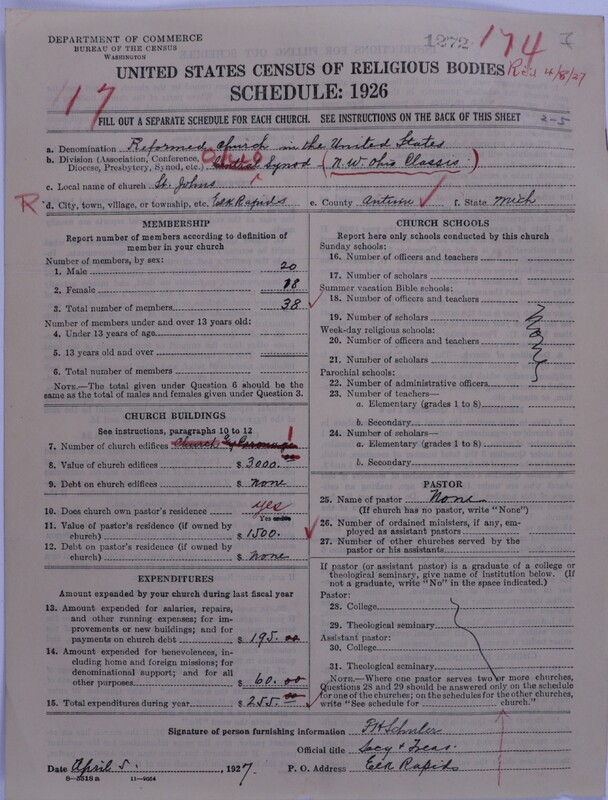 DEPARTMENT OF COMMERCE
BUREAU OF THE CENSUS
WASHINGTON
1272 174
Rec'd 4/8/27
UNITED STATES CENSUS OF RELIGIOUS BODIES
SCHEDULE: 1926
17
FILL OUT A SEPARATE SCHEDULE FOR EACH CHURCH. SEE INSTRUCTIONS ON THE BACK OF THIS SHEET
2-5
a. Denomination Reformed Church in the United States
b. Division (Association, Conference, Diocese, Presbytery, Synod, etc.) Central Ohio Synod (N.W. Ohio Classis)
c. Local name of church St. Johns
R d. City, town, village, or township, etc. Elk Rapids e. County Antrim f. State Mich
MEMBERSHIP
Report number of members according to definition of
member in your church
Number of members, by sex:
1. Male 20
2. Female 18
3. Total number of members 38
Number of members under and over 13 years old:
4. Under 13 years of age
5. 13 years old and over
6. Total number of members
NOTE.—The total given under Question 6 should be the
same as the total of males and females given under Question 3.
CHURCH BUILDINGS
See instructions, paragraphs 10 to 12
7. Number of church edifices Church & Parsonage 1
8. Value of church edifices $ 3000.
9. Debt on church edifices $ none
10. Does church own pastor's residence yes
Yes or No
11. Value of pastor's residence (if owned by
church) $ 1500.
12. Debt on pastor's residence (if owned by
church) $ none
EXPENDITURES
Amount expended by your church during last fiscal year
13. Amount expended for salaries, repairs,
and other running expenses; for im-
provements or new buildings; and for
payments on church debt $ 195. 00
14. Amount expended for benevolences,
including home and foreign missions; for
denominational support; and for all
other purposes $ 60. 00
15. Total expenditures during year $ 255. 00
CHURCH SCHOOLS
Report here only schools conducted by this church
Sunday schools:
16. Number of officers and teachers
17. Number of scholars
Summer vacation Bible schools:
18. Number of officers and teachers
19. Number of scholars
Week-day religious schools:
20. Number of officers and teachers
21. Number of scholars
Parochial schools:
22. Number of administrative officers
23. Number of teachers—
a. Elementary (grades 1 to 8)
b. Secondary
24. Number of scholars—
a. Elementary (grades 1 to 8)
b. Secondary
PASTOR
25. Name of pastor None
(If church has no pastor, write "None")
26. Number of ordained ministers, if any, em-
ployed as assistant pastors
27. Number of other churches served by the
pastor or his assistants
If pastor (or assistant pastor) is a graduate of a college or
theological seminary, give name of institution below. (If
not a graduate, write "No" in the space indicated.)
Pastor:
28. College
29. Theological seminary
Assistant pastor:
30. College
31. Theological seminary
NOTE.—Where one pastor serves two or more churches,
Questions 28 and 29 should be answered only on the schedule
for one of the churches; on the schedules for the other churches,
write "See schedule for church."
Signature of person furnishing information F H Schuler
Official title Secy & Treas.
Date April 5, 1927. P. O. Address Elk Rapids
8—5518a 11—9064